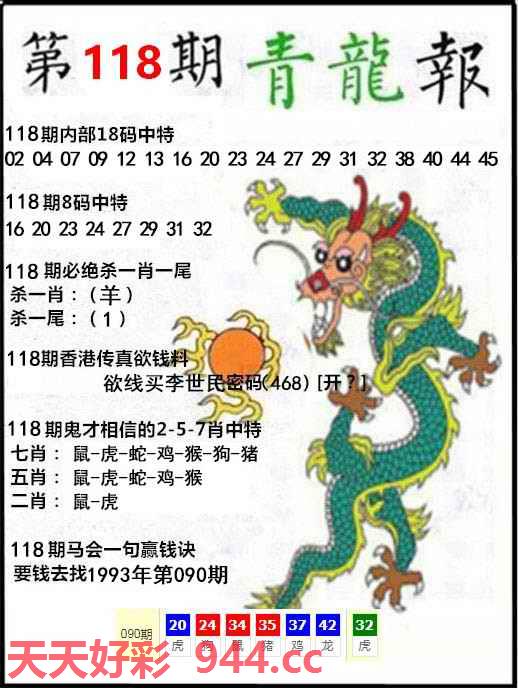 第118期青龍報
118期内部18码中特
02 04 07 09 12 13 16 20 23 24 27 29 31 32 38 40 44 45
118期8码中特
16 20 23 24 27 29 31 32
118期必绝杀一肖一尾
杀一肖：(羊)
杀一尾：(1)
118期香港传真欲钱料
欲线买李世民密码(468) [开？]
118期鬼才相信的2-5-7肖中特
七肖：鼠-虎-蛇-鸡-猴-狗-猪
五肖：鼠-虎-蛇-鸡-猴
二肖：鼠-虎
118期马会一句赢钱诀
要钱去找1993年第090期
090期 20 24 34 35 37 42 32
虎 狗 鼠 猪 鸡 龙 虎
天天好彩 944.cc